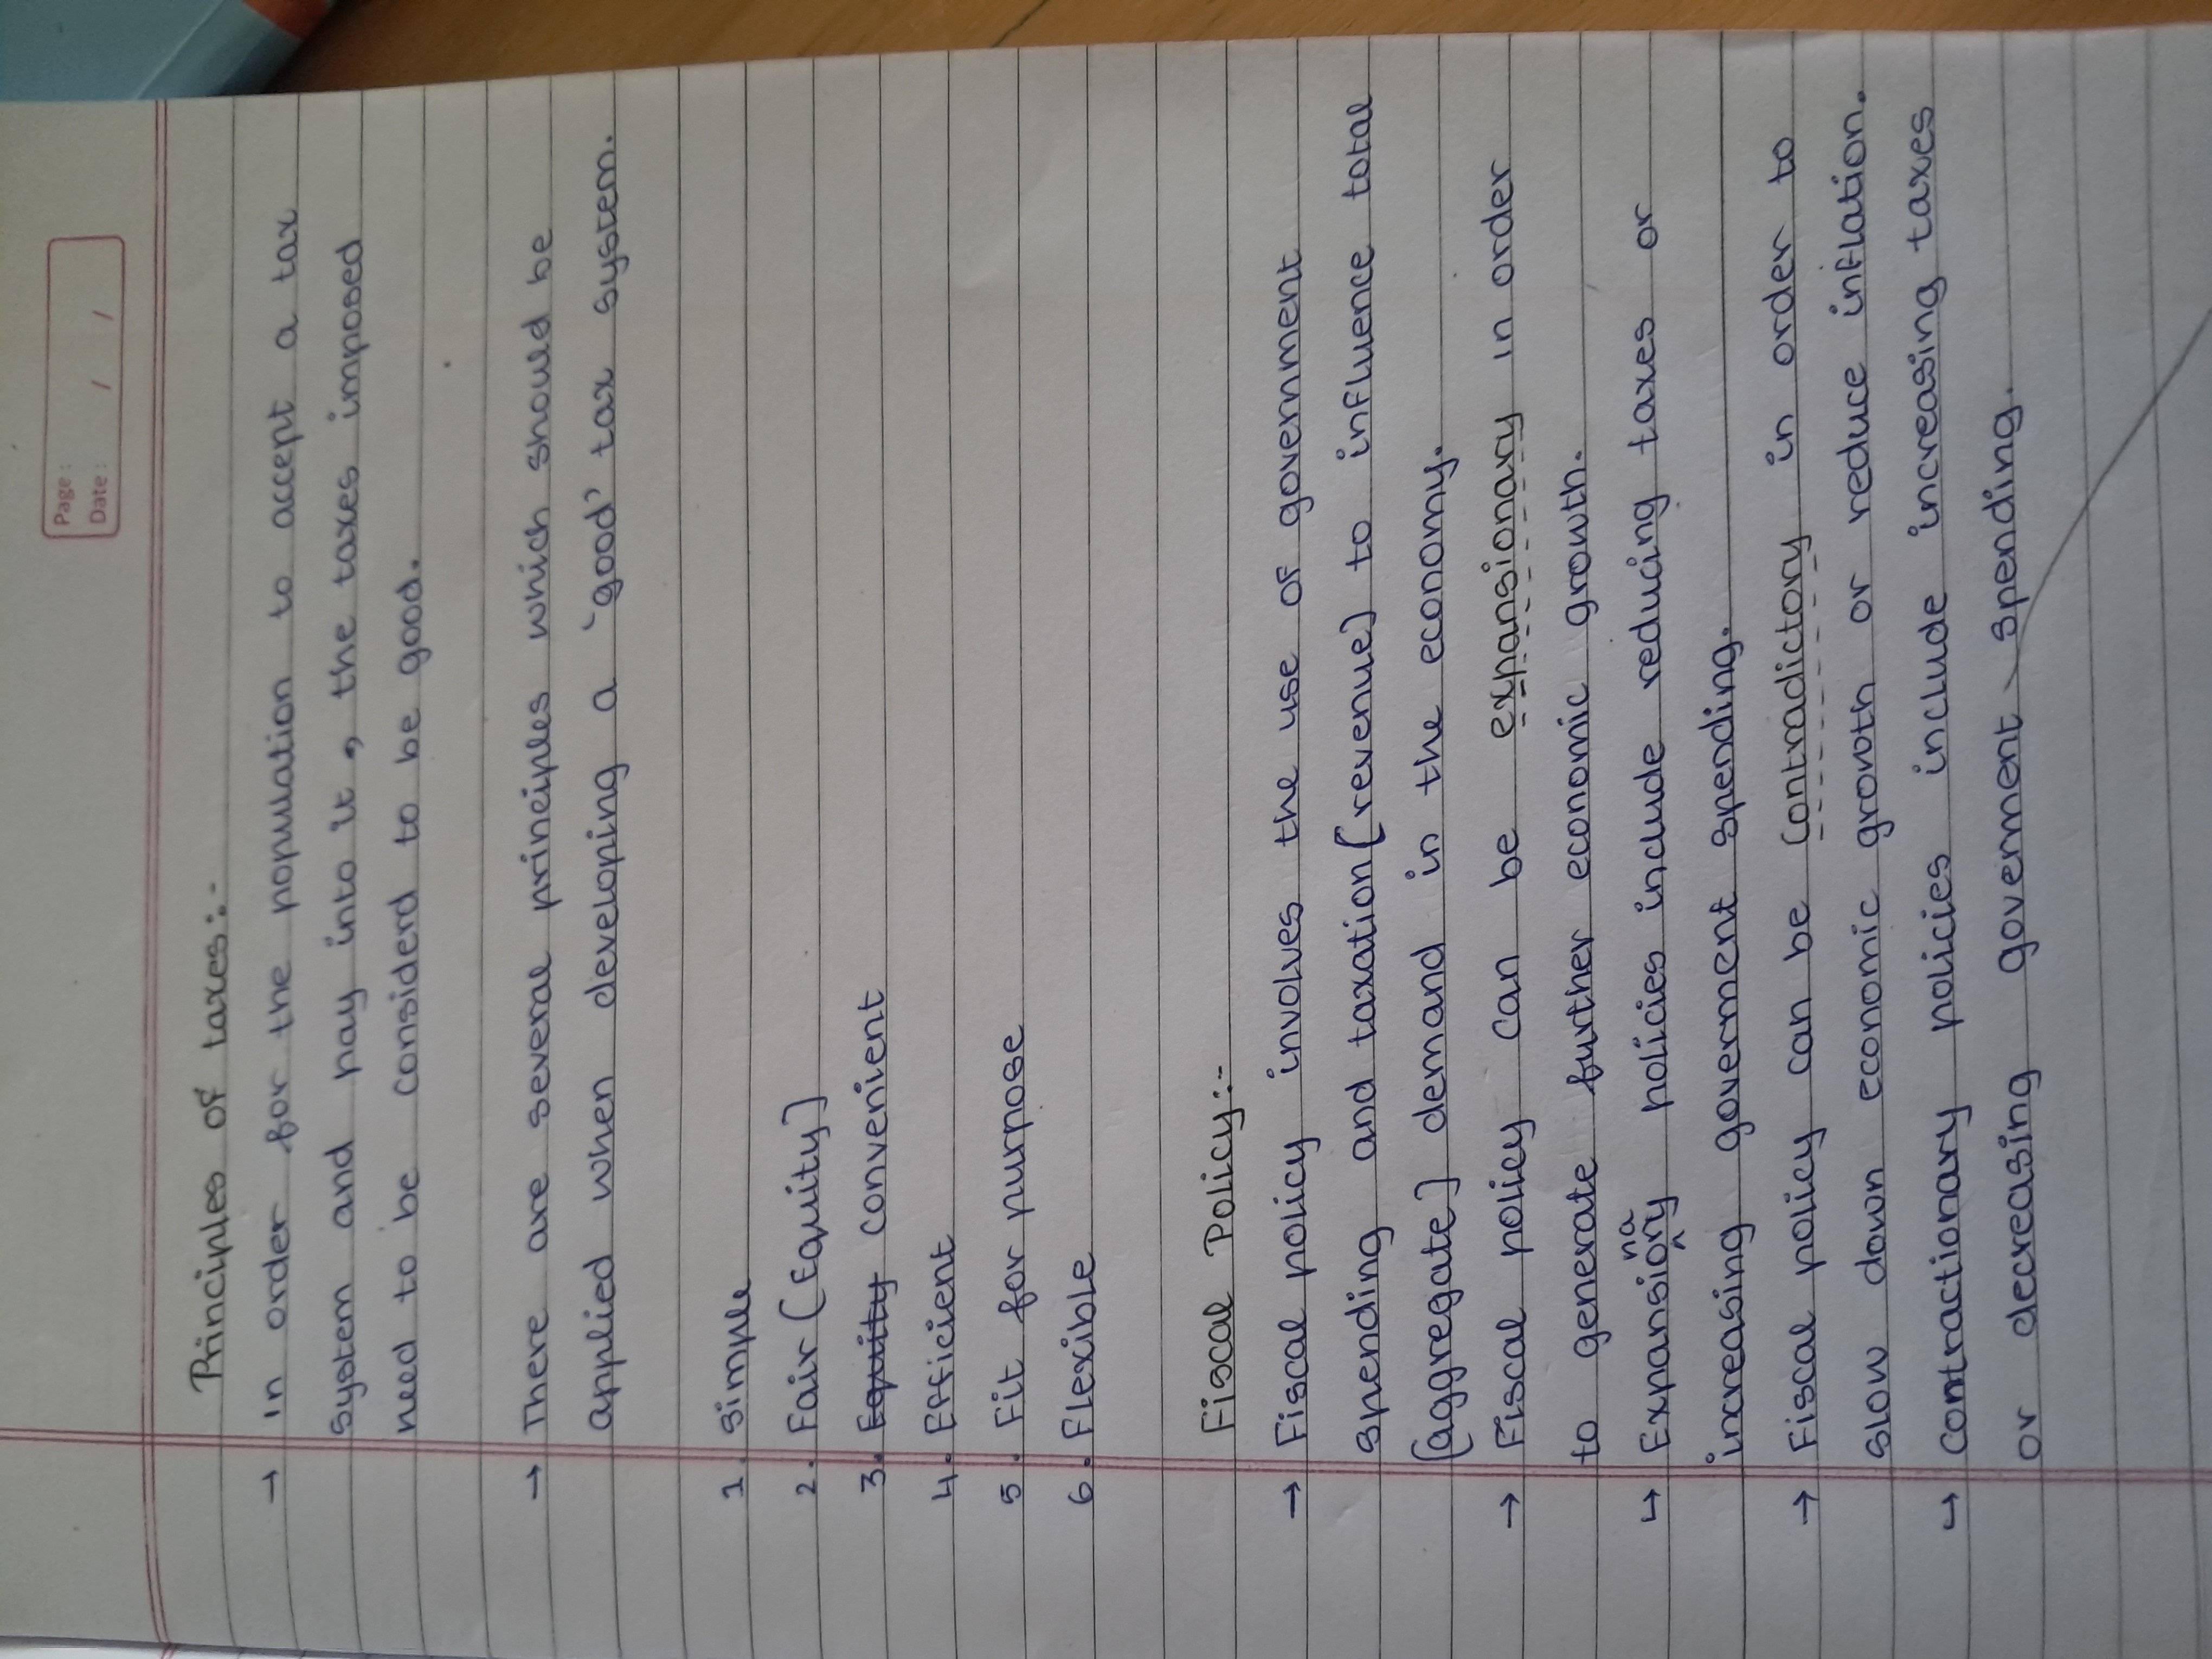 Page:
Date: / /
Principles of taxes:-
→ In order for the population to accept a tax
system and pay into it, the taxes imposed
need to be considerd to be good.
→ There are several principles which should be
applied when developing a 'good' tax system.
1. Simple
2. Fair (Equity)
3. Equity convenient
4. Efficient
5. Fit for purpose
6. Flexible
Fiscal Policy:-
→ Fiscal policy involves the use of government
spending and taxation (revenue) to influence total
(aggregate) demand in the economy.
→ Fiscal policy can be expansionary in order
to generate further economic growth.
↳ Expansionary policies include reducing taxes or
increasing government spending.
→ Fiscal policy can be contradictory in order to
slow down economic growth or reduce inflation.
↳ Contractionary policies include increasing taxes
or decreasing government spending.